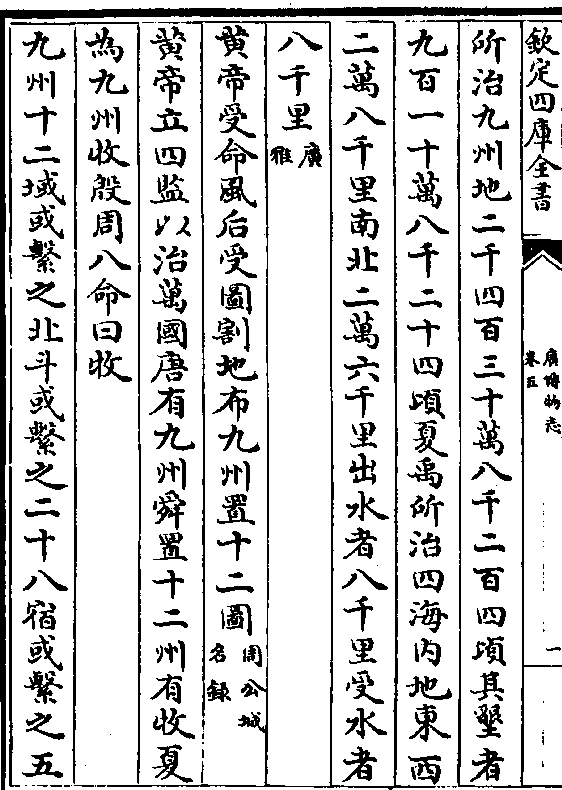 欽定四庫全書
廣博物志
卷五
一
所治九州地二千四百三十萬八千二百四頃其墾者
九百一十萬八千二十四頃夏禹所治四海内地東西
二萬八千里南北二萬六千里出水者八千里受水者
八千里廣雅
黄帝受命風后受圖割地布九州置十二圖周公城名録
黄帝立四監以治萬國唐有九州舜置十二州有收夏
為九州收殷周八命曰收
九州十二域或繫之北斗或繫之二十八宿或繫之五